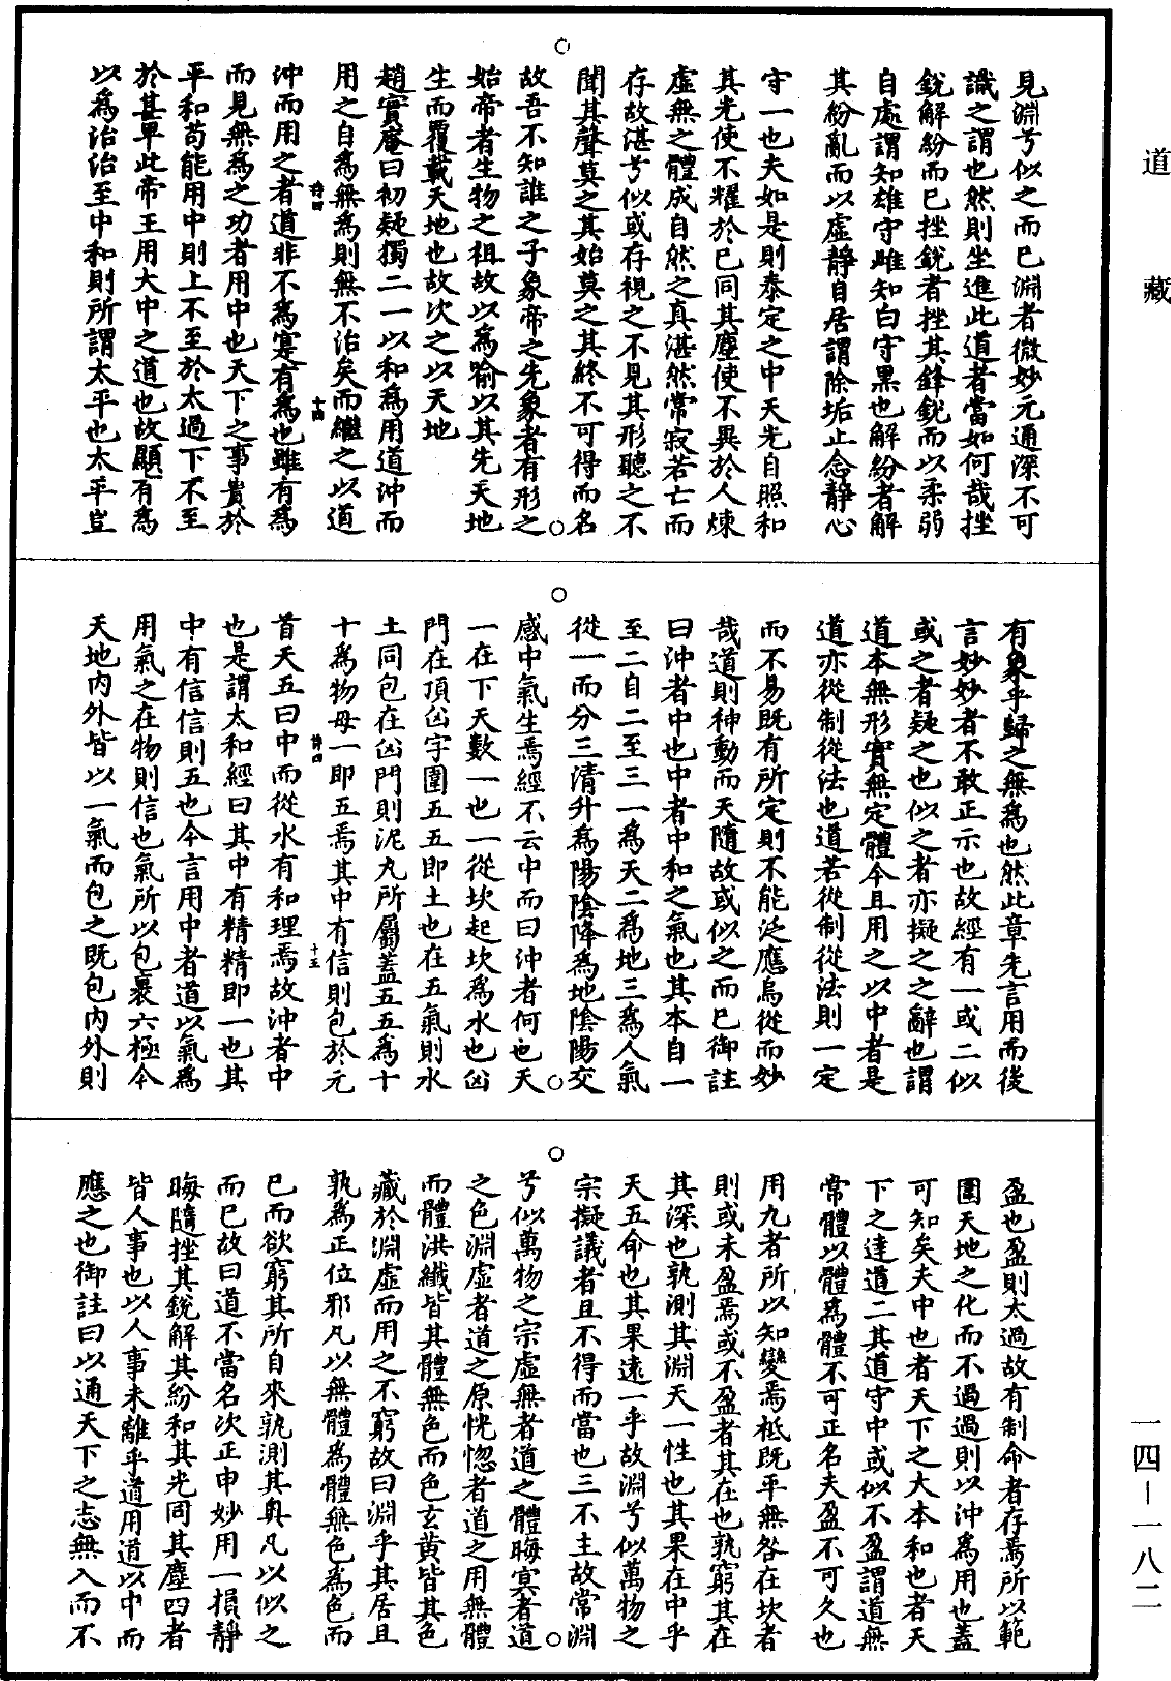 道藏
見淵兮似之而已淵者微妙元通深不可
識之謂也然則坐進此道者當如何哉挫
銳解紛而已挫銳者挫其鋒銳而以柔弱
自處謂知雄守雌知白守黑也解紛者解
其紛亂而以虛靜自居謂除垢止念靜心
守一也夫如是則泰定之中天光自照和
其光使不耀於已同其塵使不異於人煉
虛無之體成自然之真湛然常寂若亡而
存故湛兮似或存視之不見其形聽之不
聞其聲莫之其始莫之其終不可得而名
故吾不知誰之子象帝之先象者有形之
始帝者生物之祖故以為喻以其先天地
生而覆載天地也故次之以天地
趙實庵曰初疑獨二一以和為用道沖而
用之自為無為則無不治矣而繼之以道
沖而用之者道非不為寔有為也雖有為
而見無為之功者用中也天下之事貴於
平和苟能用中則上不至於太過下不至
於甚卑此帝王用大中之道也故顯有為
以為治治至中和則所謂太平也太平豈
有象乎歸之無為也然此章先言用而後
言妙妙者不敢正示也故經有一或二似
或之者疑之也似之者亦擬之之辭也謂
道本無形實無定體今且用之以中者是
道亦從制從法也道若從制從法則一定
而不易既有所定則不能泛應烏從而妙
哉道則神動而天隨故或似之而已御註
曰沖者中也中者中和之氣也其本自一
至二自二至三一為天二為地三為人氣
從一而分三清升為陽陰降為地陰陽交
感中氣生焉經不云中而曰沖者何也天
一在下天數一也一從坎起坎為水也凶
門在頂凶字圍五五即土也在五氣則水
土同包在凶門則泥丸所屬蓋五五為十
十為物母一即五焉其中有信則包於元
首天五曰中而從水有和理焉故沖者中
也是謂太和經曰其中有精精即一也其
中有信信則五也今言用中者道以氣為
用氣之在物則信也氣所以包裹六極今
天地內外皆以一氣而包之既包內外則
盈也盈則太過故有制命者存焉所以範
圍天地之化而不過過則以沖為用也蓋
可知矣夫中也者天下之大本和也者天
下之達道二其道守中或似不盈謂道無
常體以體為體不可正名夫盈不可久也
用九者所以知變焉祗既平無咎在坎者
則或未盈焉或不盈者其在也孰窮其在
其深也孰測其淵天一性也其果在中乎
天五命也其果遠一乎故淵兮似萬物之
宗擬議者且不得而當也三不主故常淵
兮似萬物之宗虛無者道之體晦冥者道
之色淵虛者道之原恍惚者道之用無體
而體洪纖皆其體無色而色玄黃皆其色
藏於淵虛而用之不窮故曰淵乎其居且
孰為正位邪凡以無體為體無色為色而
已而欲窮其所自來孰測其奧凡以似之
而已故曰道不當名次正申妙用一損靜
晦隨挫其銳解其紛和其光同其塵四者
皆人事也以人事未離乎道用道以中而
應之也御註曰以通天下之志無入而不
一四—一八二